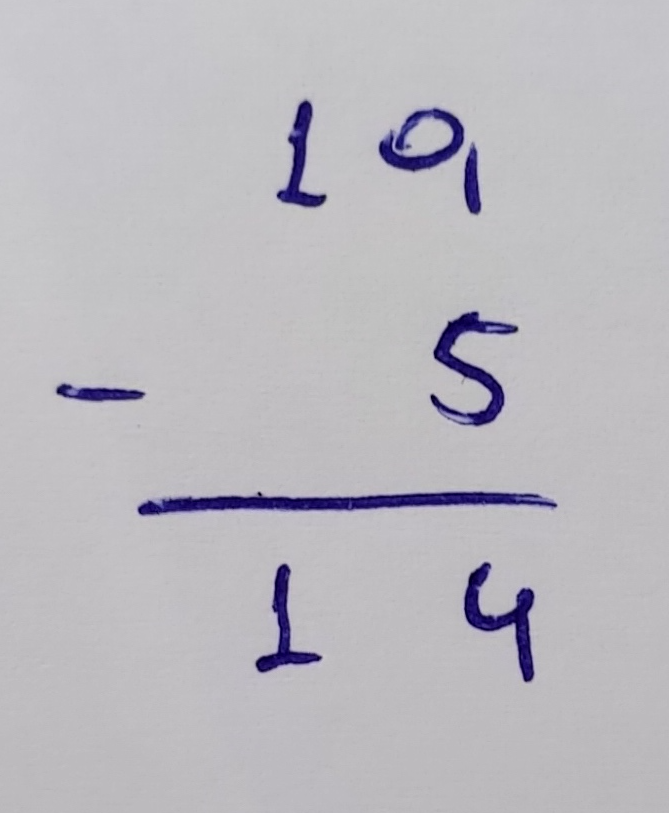 19
- 5
14